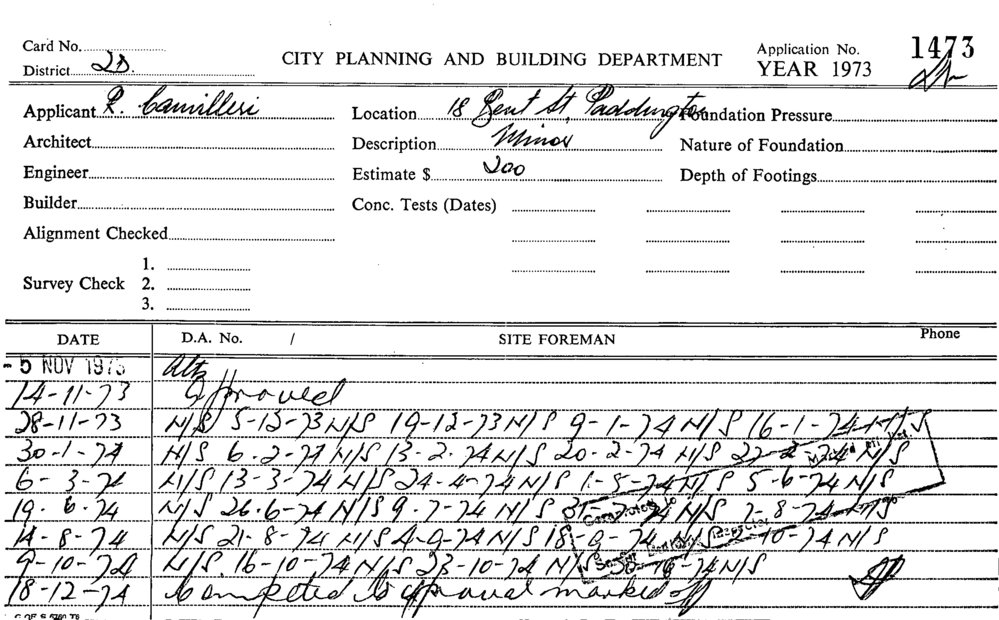 Card No. CITY PLANNING AND BUILDING DEPARTMENT Application No. 1473
District 2D. YEAR 1973
Applicant R. Camilleri Location 18 Gent St, Paddington Foundation Pressure
Architect Description Minor Nature of Foundation
Engineer Estimate $ 200 Depth of Footings
Builder Conc. Tests (Dates)
Alignment Checked
1.
Survey Check 2.
3.
DATE D.A. No. / SITE FOREMAN Phone
- 5 NOV 1973 Alts
14-11-73 Approved
28-11-73 N/S 5-12-73 N/S 19-12-73 N/S 9-1-74 N/S 16-1-74 N/S
30-1-74 N/S 6-2-74 N/S 13-2-74 N/S 20-2-74 N/S 27-2-74 N/S
6-3-74 N/S 13-3-74 N/S 24-4-74 N/S 1-5-74 N/S 5-6-74 N/S
19.6.74 N/S 26-6-74 N/S 9-7-74 N/S 31- 74 N/S 7-8-74 N/S
14-8-74 N/S 21-8-74 N/S 4-9-74 N/S 18-9-74 N/S 10-74 N/S
9-10-74 N/S 16-10-74 N/S 23-10-74 N/S 30-10-74 N/S
18-12-74 Completed to approval marked off